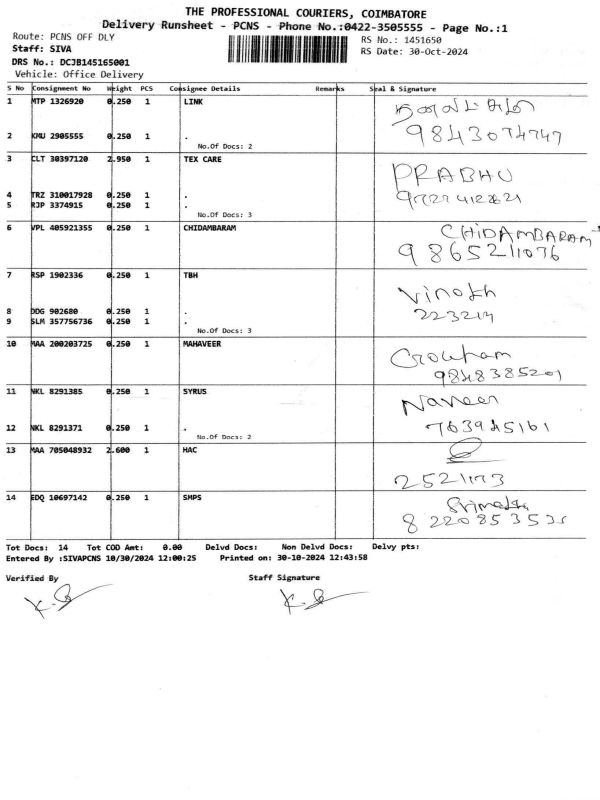 THE PROFESSIONAL COURIERS, COIMBATORE
Delivery Runsheet - PCNS - Phone No.:0422-3505555 - Page No.:1
Route: PCNS OFF DLY RS No.: 1451650
Staff: SIVA RS Date: 30-Oct-2024
DRS No.: DCJB145165001
Vehicle: Office Delivery
S No Consignment No Weight PCS Consignee Details Remarks Seal & Signature
1 MTP 1326920 0.250 1 LINK
9843074747
2 KMU 2905555 0.250 1 .
No.Of Docs: 2
3 CLT 30397120 2.950 1 TEX CARE PRABHU
4 TRZ 310017928 0.250 1 .
5 RJP 3374915 0.250 1 .
No.Of Docs: 3
6 VPL 405921355 0.250 1 CHIDAMBARAM CHIDAMBARAM
9865211076
7 RSP 1902336 0.250 1 TBH Vinoth
8 DDG 902680 0.250 1 .
9 SLM 357756736 0.250 1 .
No.Of Docs: 3
10 MAA 200203725 0.250 1 MAHAVEER Gowtham
9848385201
11 NKL 8291385 0.250 1 SYRUS Naveen
12 NKL 8291371 0.250 1 . 763945161
No.Of Docs: 2
13 MAA 705048932 2.600 1 HAC
2521173
14 EDQ 10697142 0.250 1 SMPS
Tot Docs: 14 Tot COD Amt: 0.00 Delvd Docs: Non Delvd Docs: Delvy pts:
Entered By :SIVAPCNS 10/30/2024 12:00:25 Printed on: 30-10-2024 12:43:58
Verified By Staff Signature